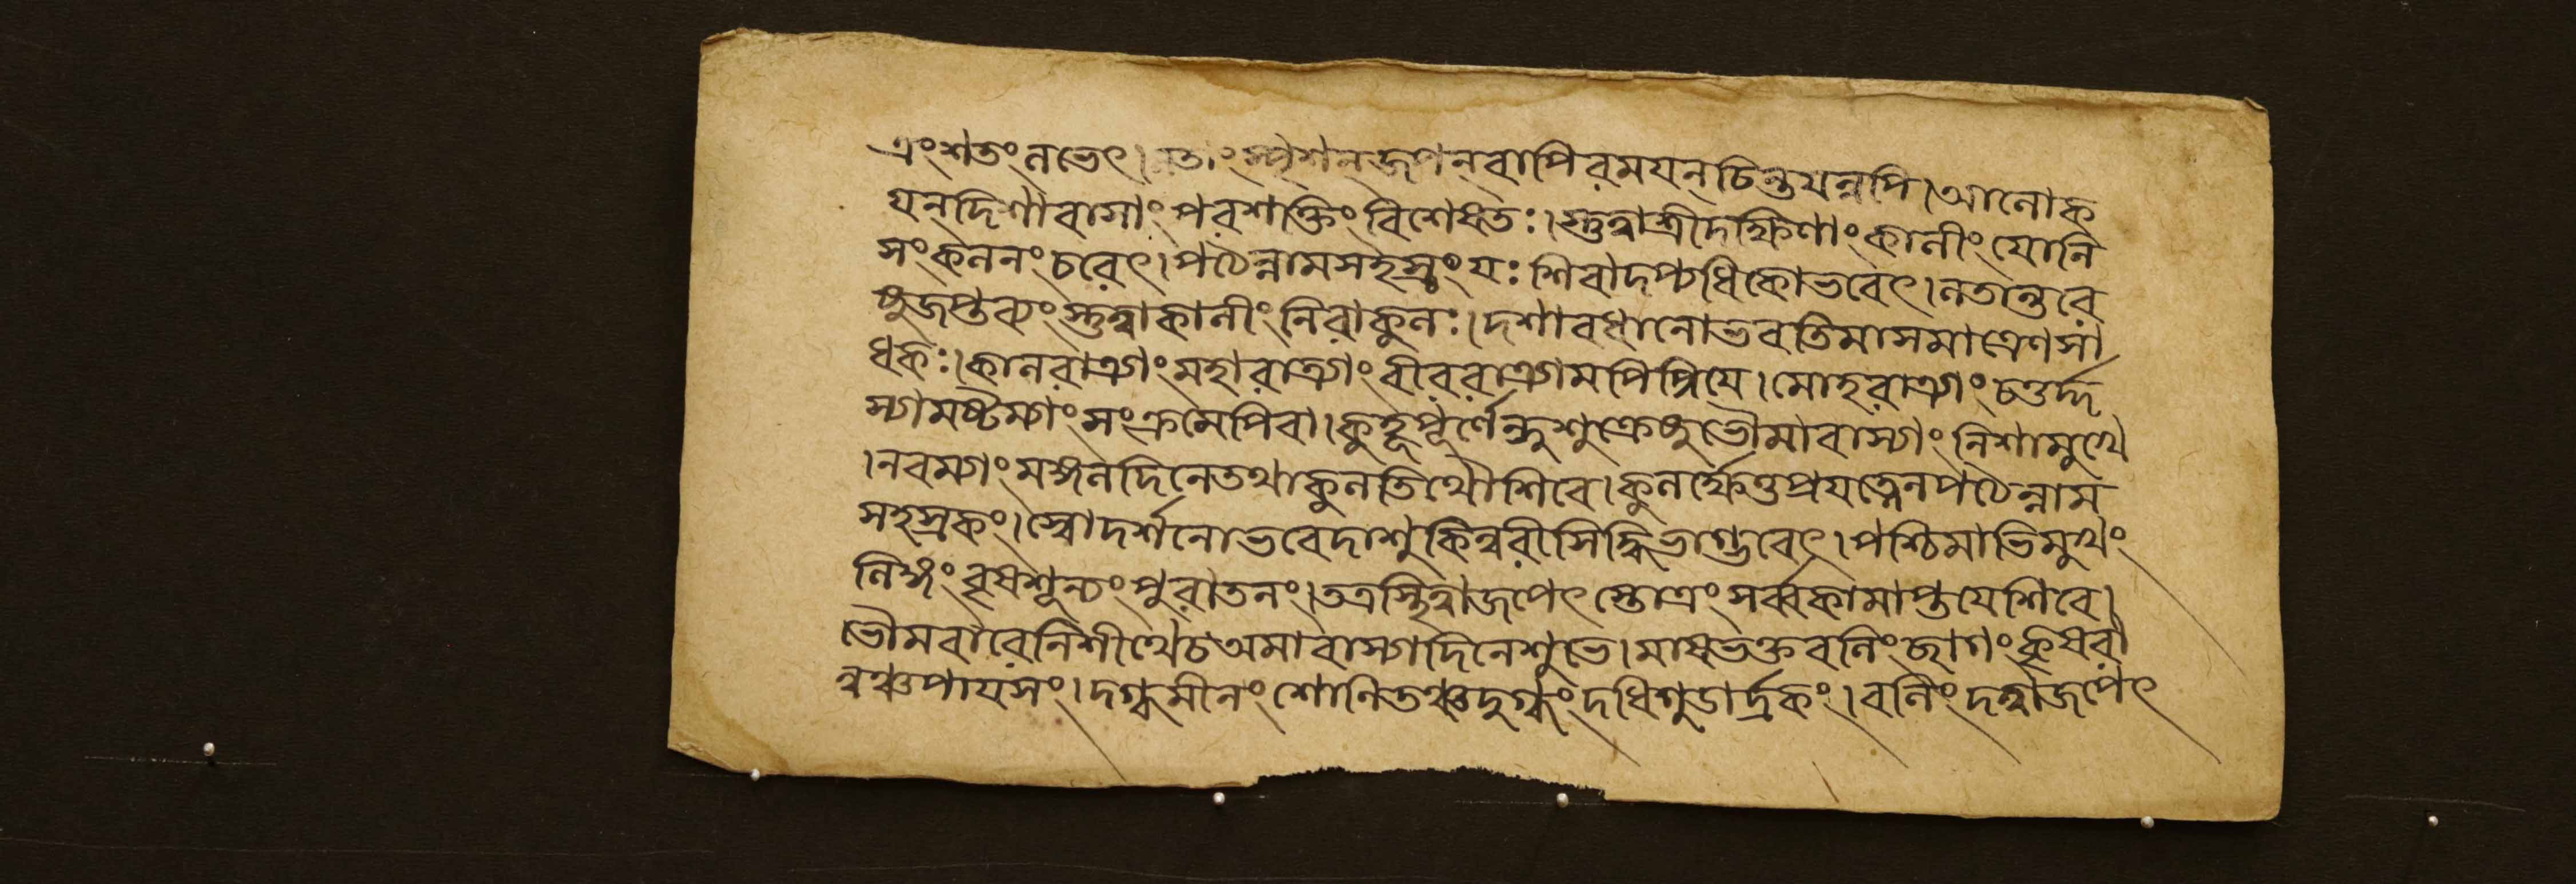 এং শতং লভেৎ। তাং স্পৃশন্ জপন্ বাপি রময়ন্ চিন্তয়ন্নপি। আলোক
য়ন্ দিশাবাসাং পরশক্তিং বিশেষতঃ। স্তুত্বা শ্রীদক্ষিণাং কালীং যোনি
সংকলনং চরেৎ। পঠেন্নামসহস্রং যঃ শিবাদপ্যধিকো ভবেৎ। লতান্তরে
ষু জপ্তব্যং স্তুত্বা কালীং নিরাকুলঃ। দশাবধানো ভবতি মাসমাত্রেণ সা
ধকঃ। কালরাত্র্যাং মহারাত্র্যাং বীররাত্র্যামপি প্রিয়ে। মোহরাত্র্যাং চতুর্দ্দ
স্যামষ্টম্যাং সংক্রমেপি বা। কুহূপূর্ণেন্দুশুক্রেষু ভৌমাবাস্যাং নিশামুখে
। নবম্যাং মঙ্গলদিনে তথা কুলতিথৌ শিবে। কুলর্ক্ষে তু প্রযত্নেন পঠেন্নাম
সহস্রকং। স্বো দর্শনো ভবেদাশু কিন্নরীসিদ্ধিভাগ্ভবেৎ। পশ্চিমাভিমুখং
লিঙ্গং বৃষশূন্যং পুরাতনং। তত্র স্থিত্বা জপেৎ স্তোত্রং সর্ব্বকামাপ্তয়ে শিবে।
ভৌমবারে নিশীথে চ অমাবাস্যাদিনে শুভে। মাষভক্তবলিং ছাগং কৃষরা
ন্নঞ্চ পায়সং। দগ্ধমীনং শোণিতঞ্চ দুগ্ধং দধিগুডার্দ্রকং। বলিং দত্বা জপেৎ